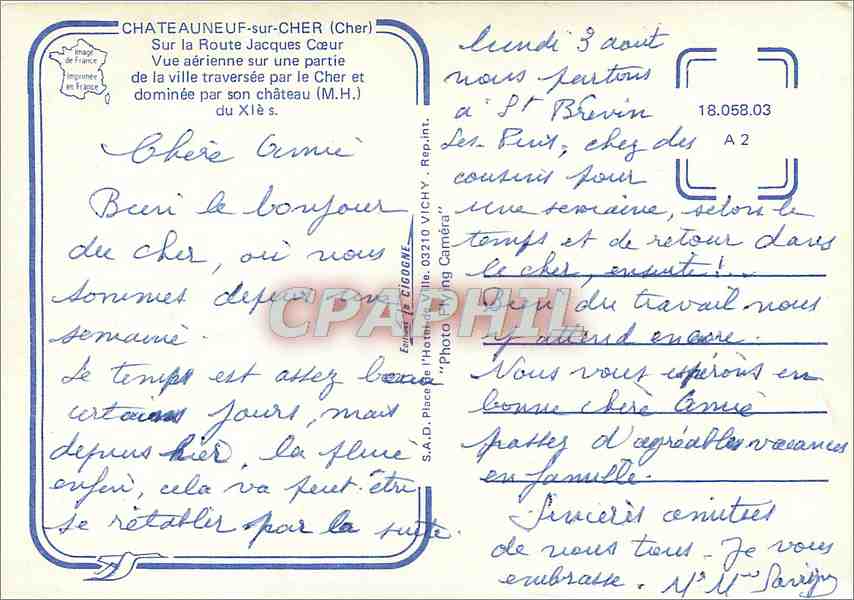 CHATEAUNEUF-sur-CHER (Cher)
Sur la Route Jacques Cœur
Vue aérienne sur une partie
de la ville traversée par le Cher et
dominée par son château (M.H.)
du XIè s.
Image
de France
Imprimée
en France
Chère Amie
Bien le bonjour
du Cher, où nous
sommes depuis une
semaine.
Le temps est assez beau
certains jours, mais
depuis hier, la pluie
enfin, cela va peut-être
se rétablir par la suite.
Editions La CIGOGNE
S.A.D. Place de l'Hotel de Ville. 03210 VICHY . Rep.int.
"Photo Flying Caméra"
CPAPHIL
18.058.03
A 2
lundi 3 août
nous partons
à St Brévin
Les Pins, chez des
cousins pour
une semaine, selon le
temps et de retour dans
le cher, ensuite!..
Bien du travail nous
y attend encore.
Nous vous espérons en
bonne chère Amie
passez d'agréables vacances
en famille.
Sincères amitiés
de nous tous - Je vous
embrasse. Mr Mme